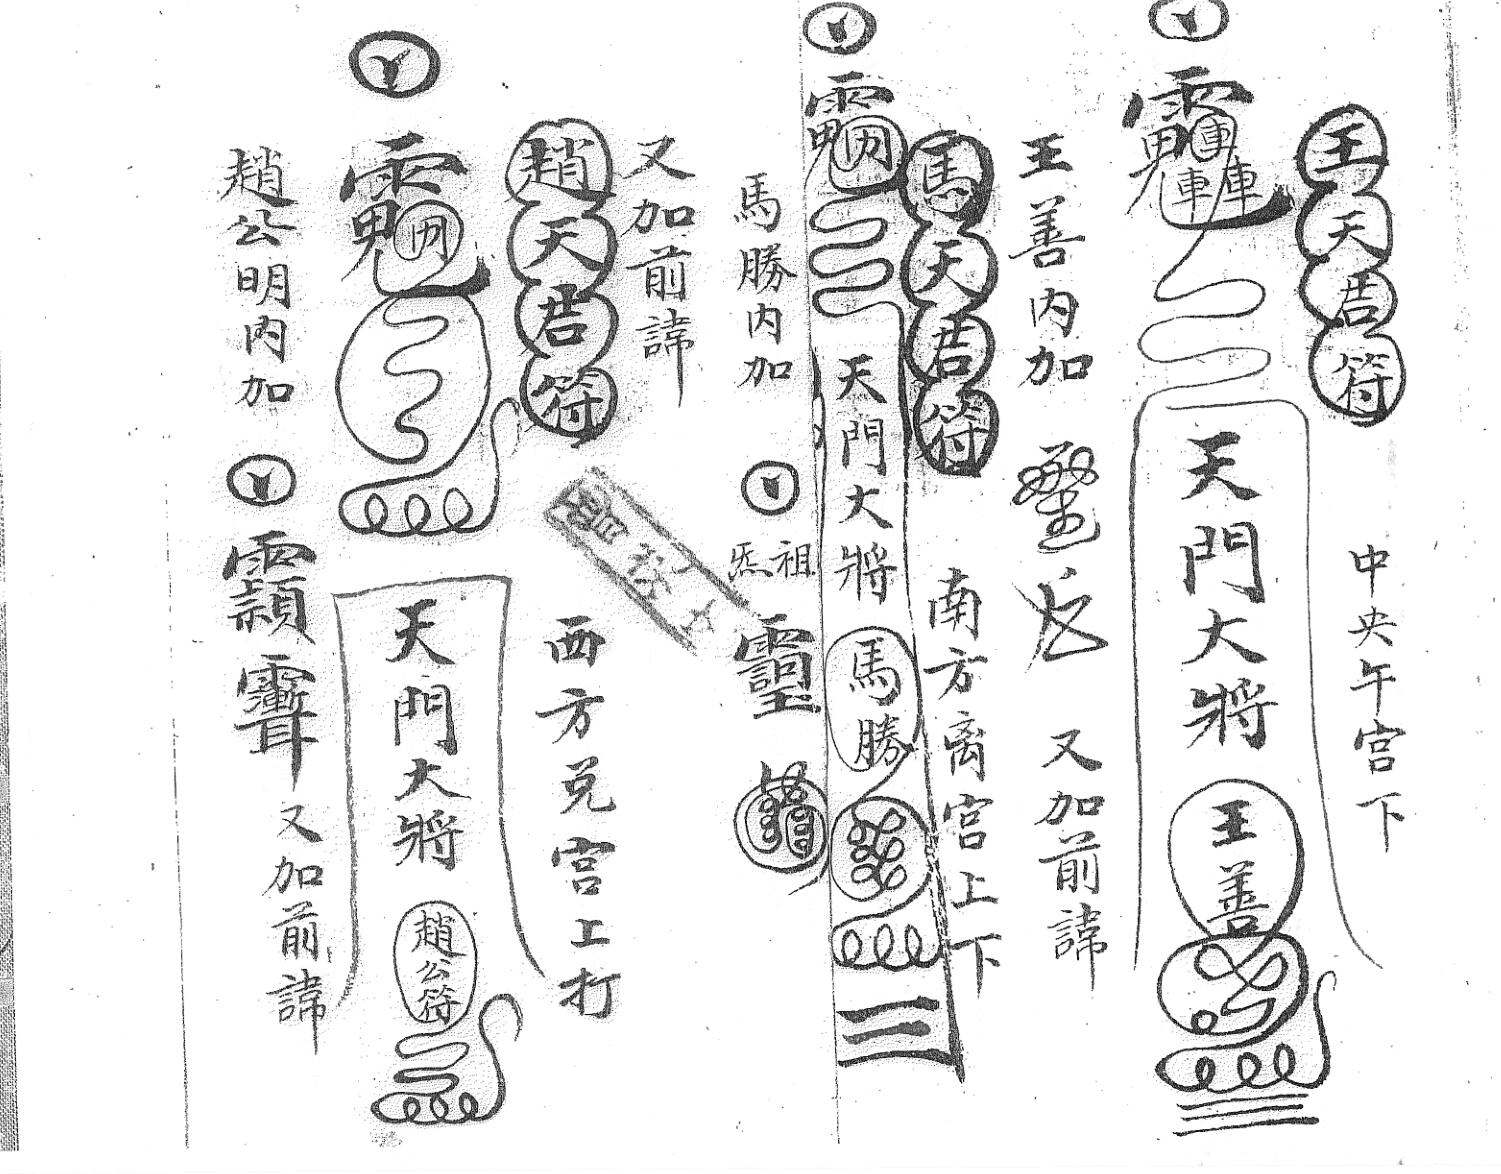 王天君符
中央午宮下
天門大將
王善
王善內加
又加前諱
馬天君符
南方离宮上下
天門大將
馬勝
三
馬勝內加
祖炁
又加前諱
趙天君符
西方兑宮上打
天門大將
趙公符
趙公明內加
又加前諱